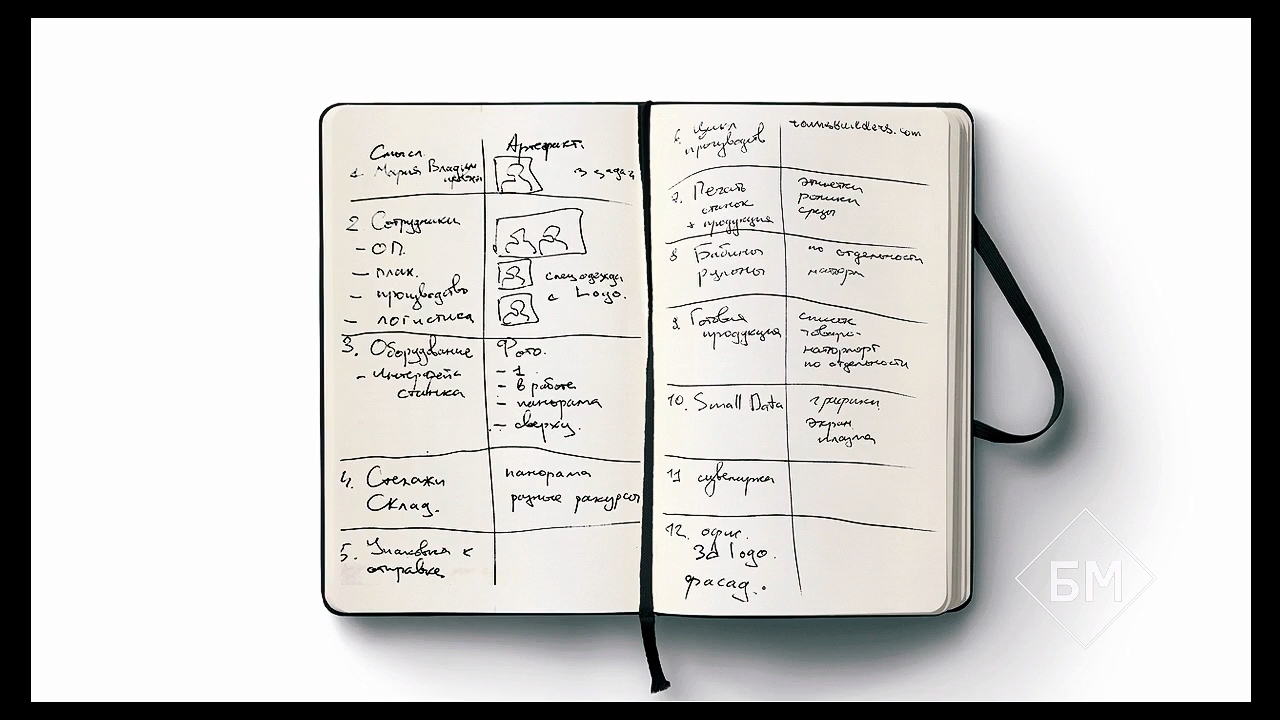 Смысл. Артефакт.
1. Мария Владим 3 задач
2 Сотрудники
- ОП.
- плак.
- производство
- логистика
спецодежда
с Logo.
3. Оборудование
- Интерфейс
станка
Фото.
- 1.
- в работе
- панорама
- сверху.
4. Стелажи
Склад.
панорама
разные ракурсы
5. Упаковка к
отправке
6. Цикл
производств
7. Печать
станок
+ продукция
этикетки
ролики
8 Бабины
рулоны
по отдельности
9. Готовая
продукция
список
товаро-
натюрпорт
по отдельности
10. Small Data
графики
экран
плазма
11 сувенирка
12. офис.
3d logo.
фасад.
БМ